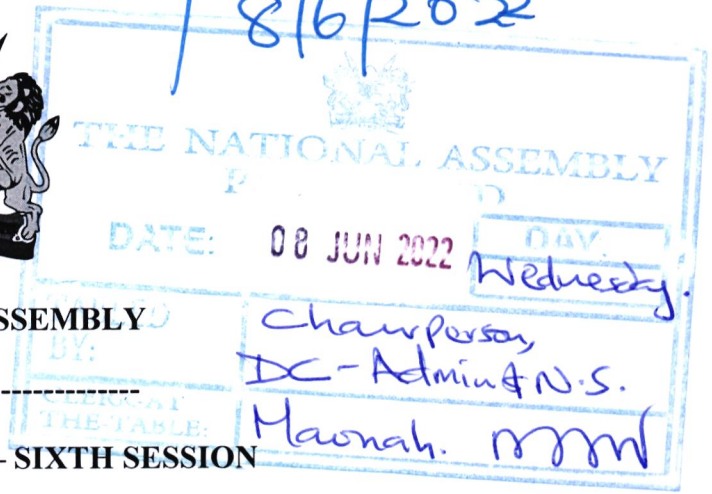 8/6/2022
THE NATIONAL ASSEMBLY
P D
DATE: 08 JUN 2022 DAY.
Wednesday.
SSEMBLY
BY:
Chairperson,
DC-Admin & N.S.
---------------
CLERK AT
THE-TABLE:
- SIXTH SESSION